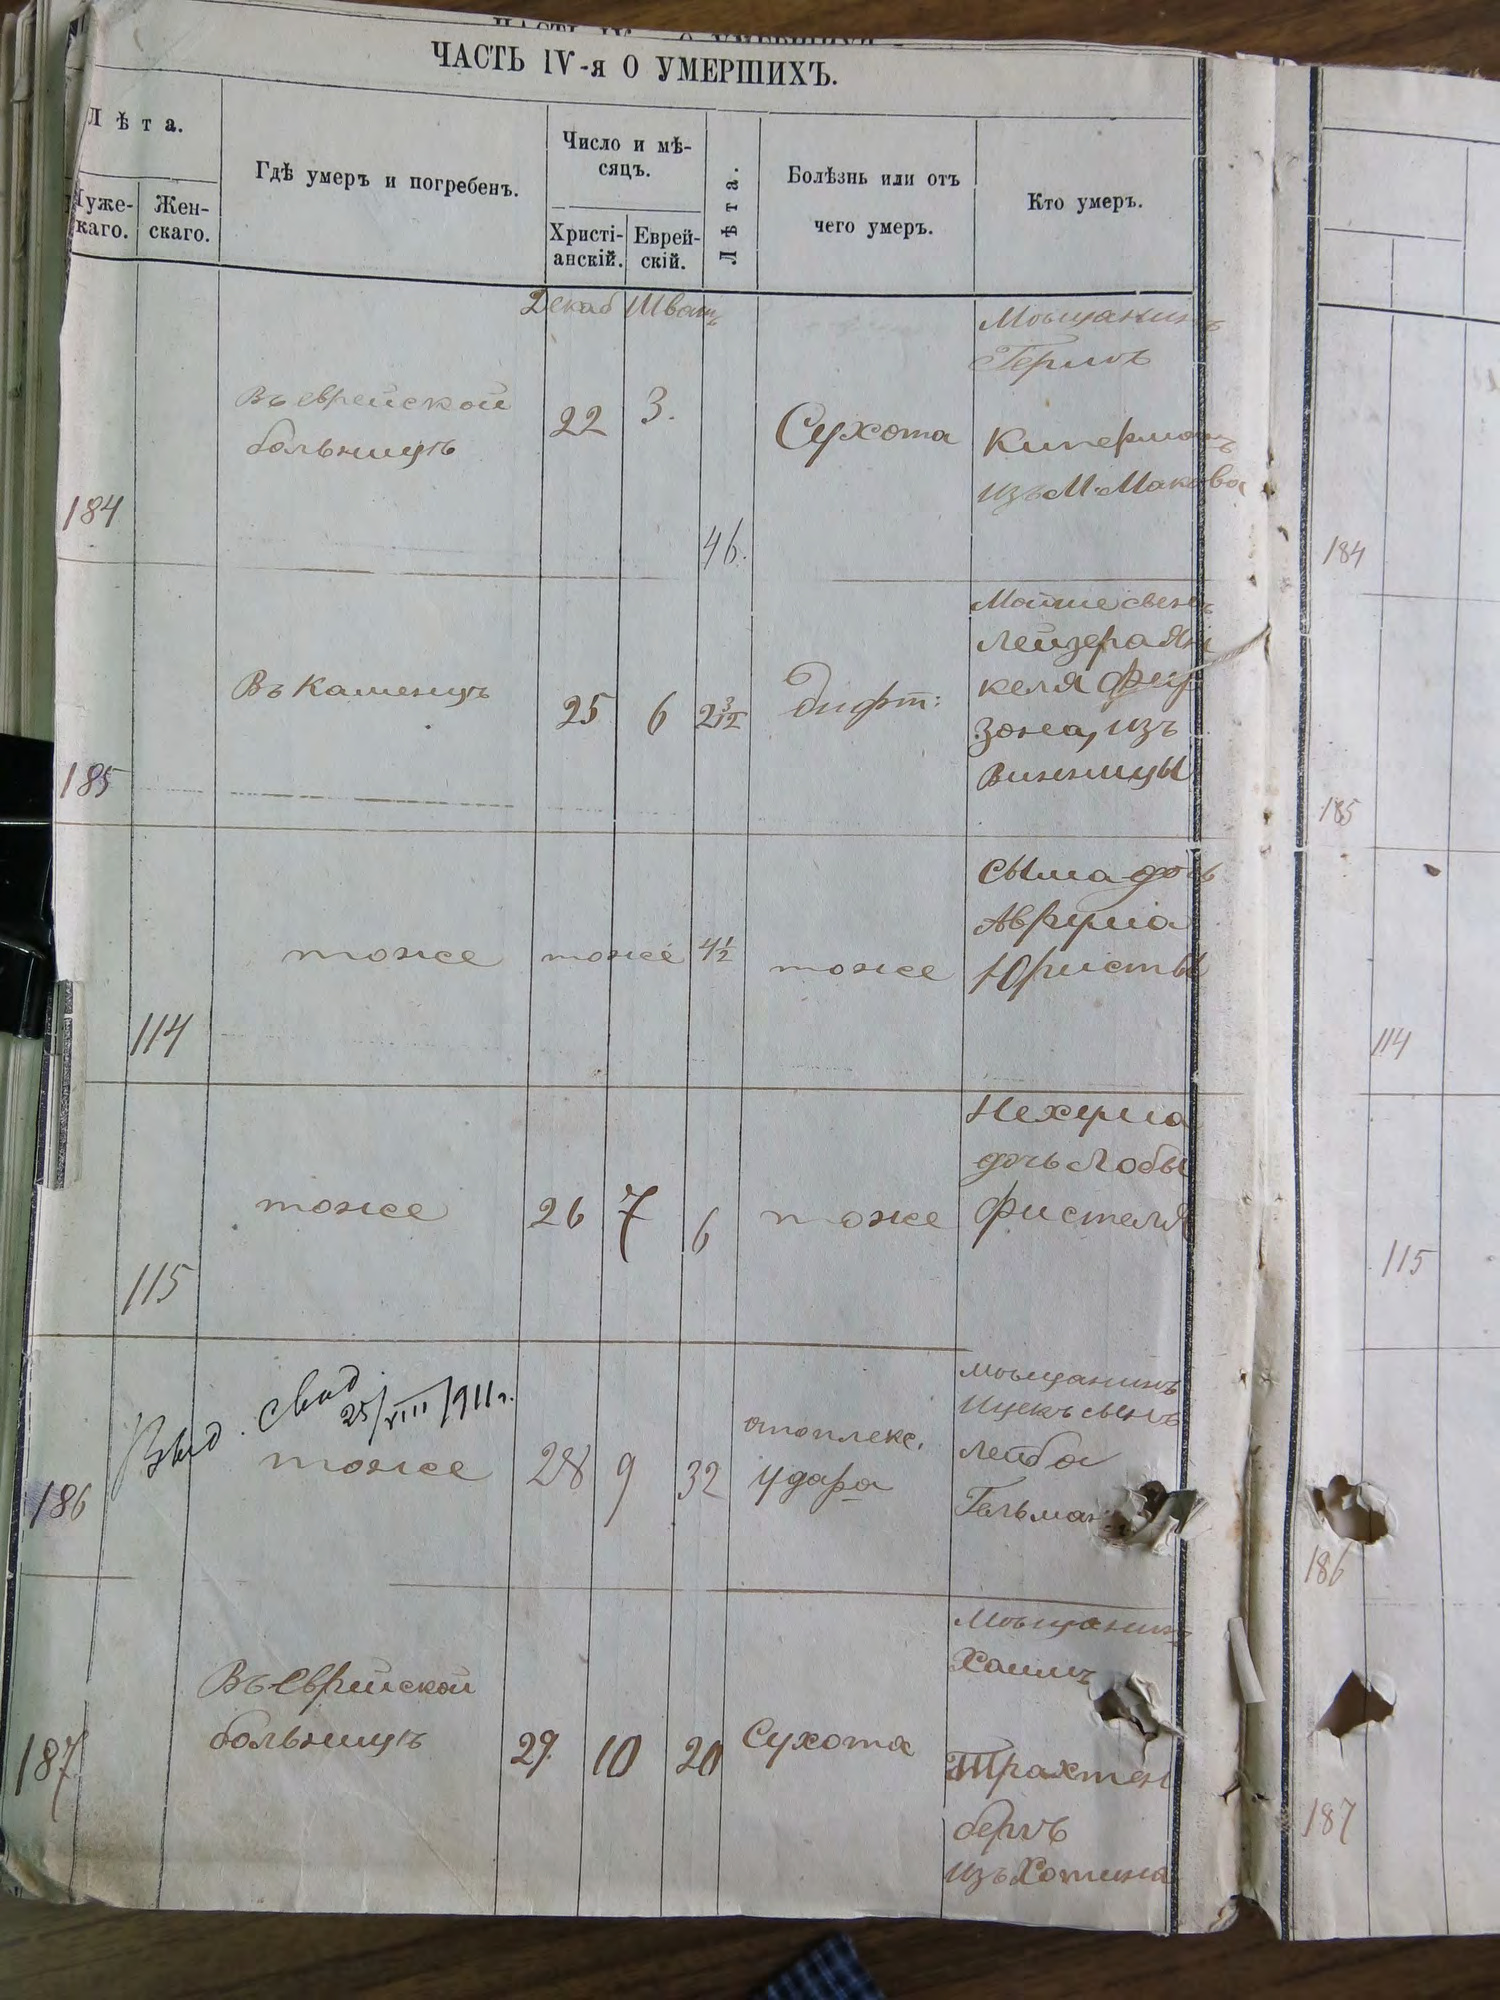 ЧАСТЬ IV-я О УМЕРШИХЪ.
Лѣта.
Муже-
каго.
Жен-
скаго.
Гдѣ умеръ и погребенъ.
Число и мѣ-
сяцъ.
Христі-
анскій.
Еврей-
скій.
Лѣта.
Болѣзнь или отъ
чего умеръ.
Кто умеръ.
Декаб Шватъ
184
Въ еврейской
больницѣ
22
3.
46.
Сухота
Мѣщанинъ
Гершъ
Киперманъ
изъ М. Макова
184
185
Въ Каменцѣ
25
6
2 3/12
дифт:
Мойше сынъ
Лейзера Ян
келя Фур
зона, изъ
Винницы
185
114
тоже
тоже
4 1/2
тоже
Сыма дочь
Аврума
Юристы
114
115
тоже
26
7
6
тоже
Нехума
дочь Лобы
Фистеля
115
186
Выд. свид
25/VIII/911г.
тоже
28
9
32
апоплекс.
удара
Мѣщанинъ
Ицекъ сынъ
Лейба
Гельман
186
187
Въ Еврейской
больницѣ
29.
10
20
Сухота
Мѣщанинъ
Хаимъ
Трахтен
бергъ
изъ Хотина
187